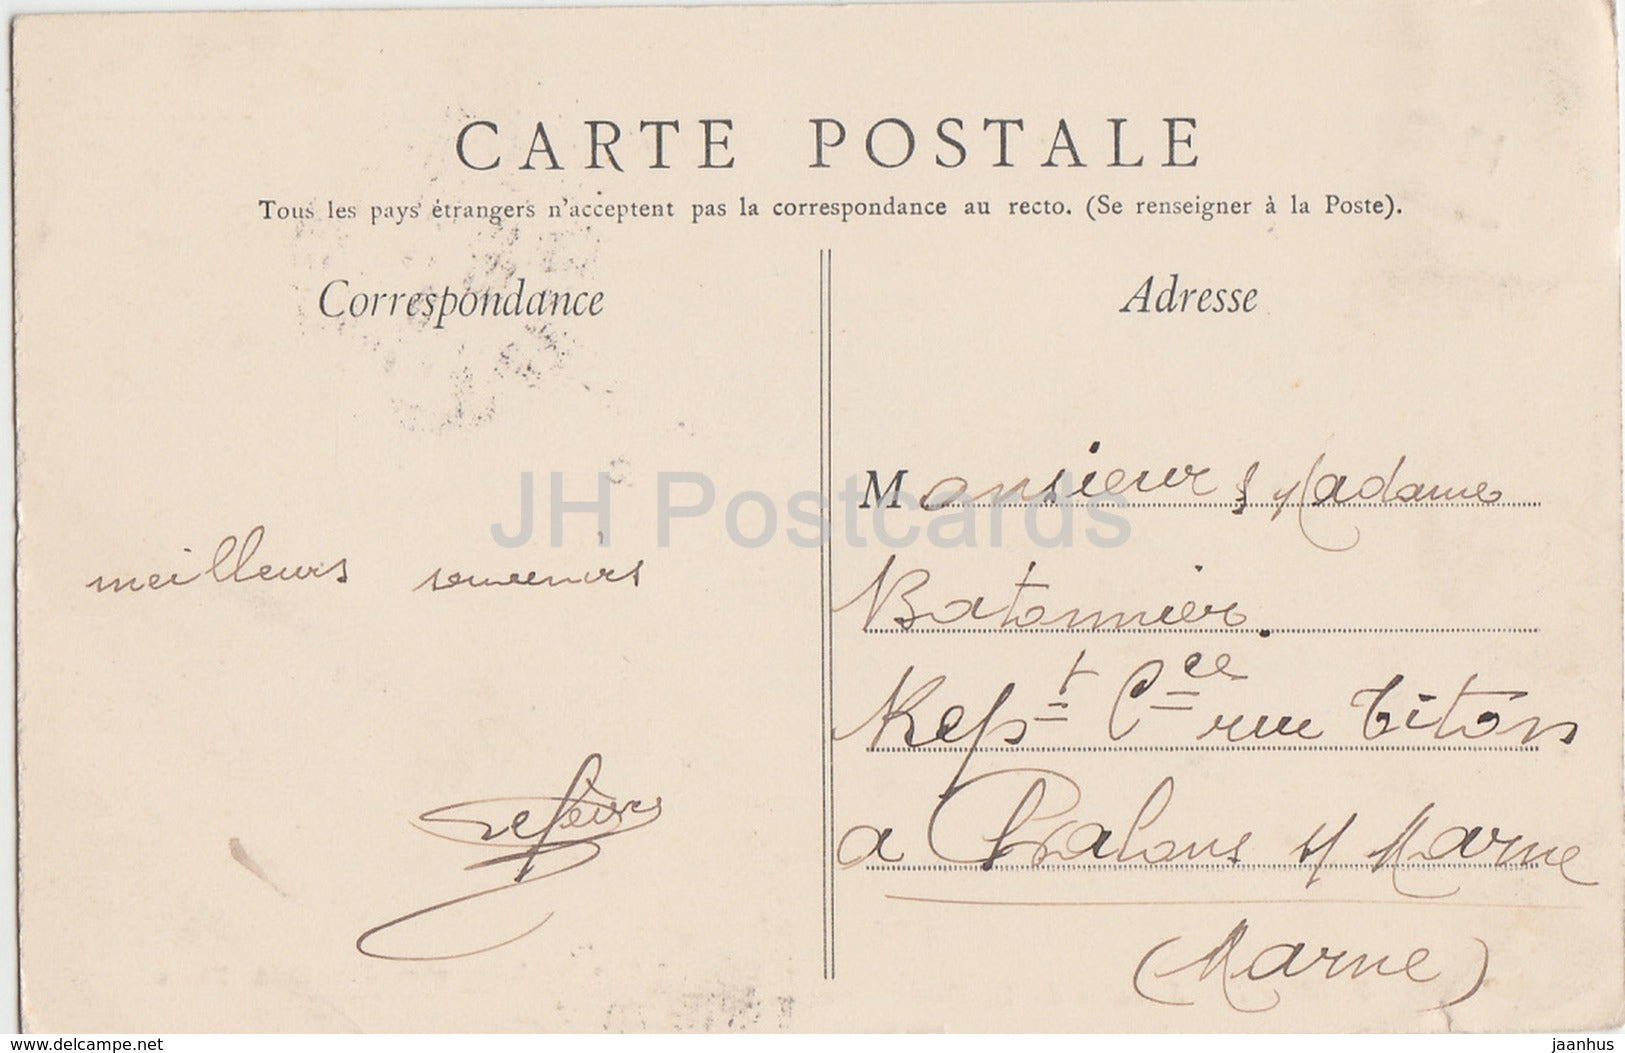 CARTE POSTALE
Tous les pays étrangers n'acceptent pas la correspondance au recto. (Se renseigner à la Poste).
Correspondance
meilleurs souvenirs
Lefèvre
Adresse
Monsieur & Madame
Batonnier.
Rep^t C^ce rue Titon
a Chalons s/ Marne
(Marne)
JH Postcards
delcampe.net
jaanhus